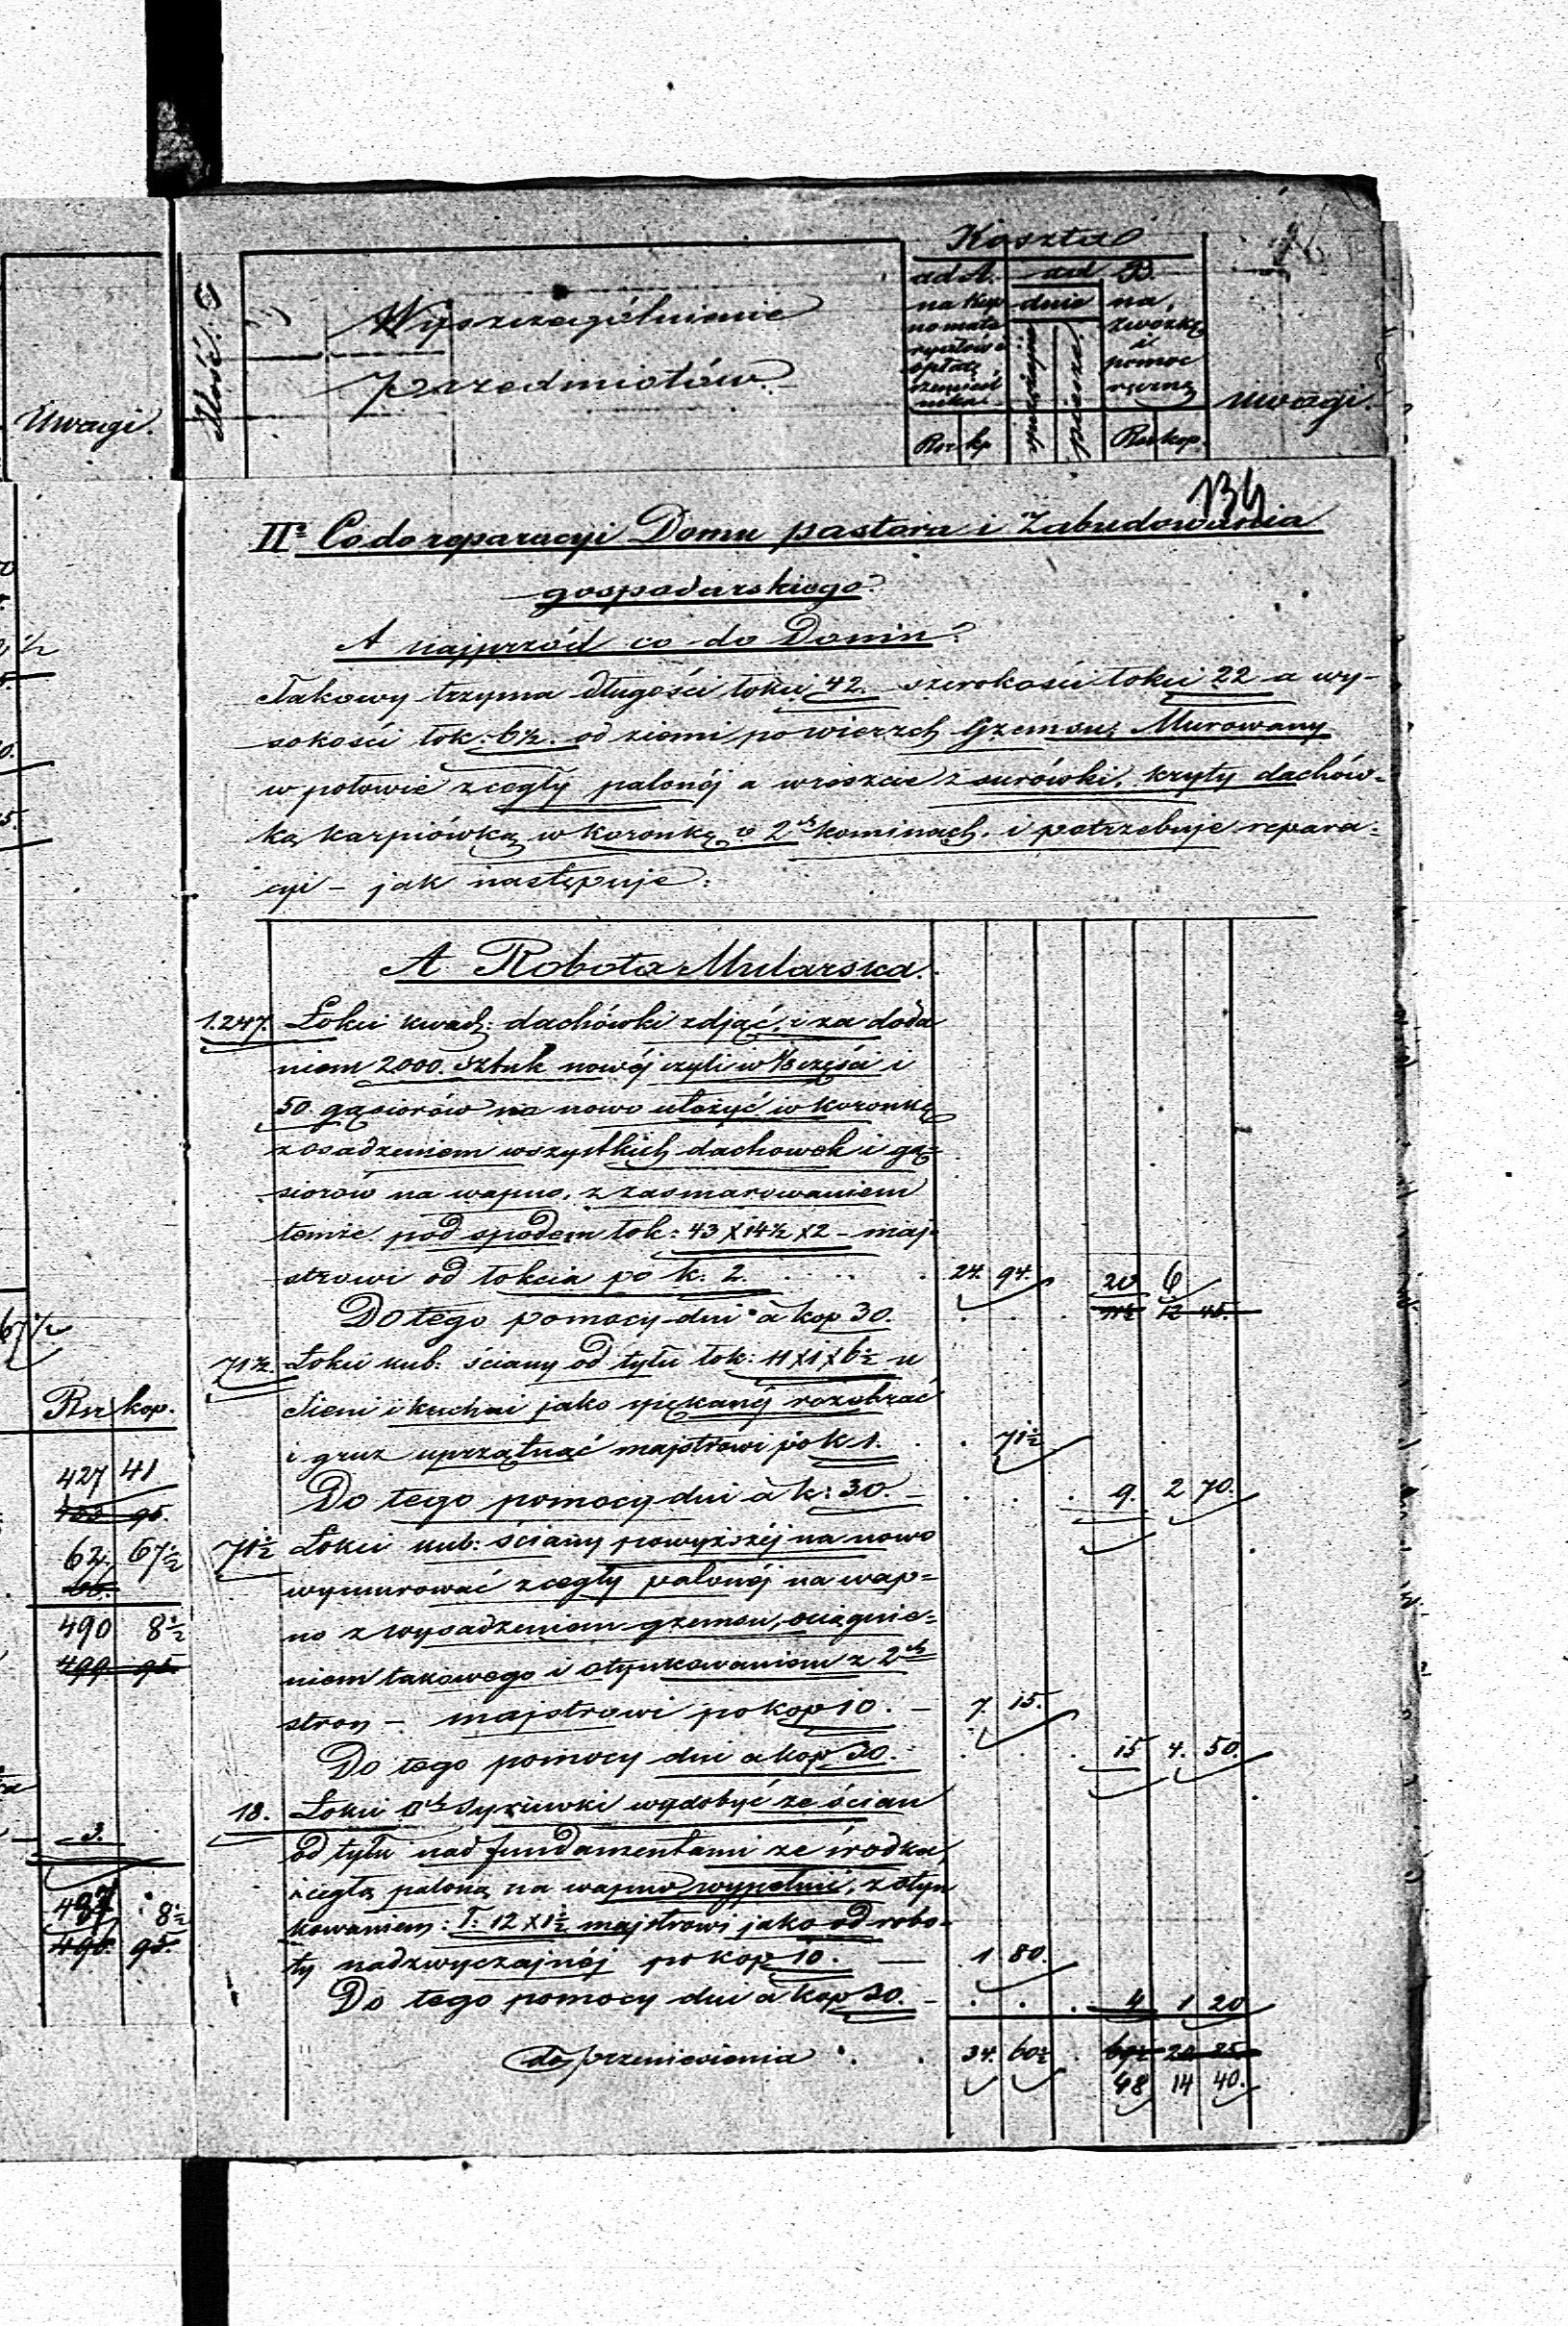 Uwagi.
Rsr kop.
427 41
62. 67½
490 8½
499. 95.
3.
487 8½
496. 95.
Ilość.
Wyszczególnienie
przedmiotów.
Koszta
ad A.
na kup
no mate
ryałów i
opłatę
rzemieśl
nika
Rsr kp
ad B.
dnie
piesze
na
zwózkę
i
pomoc
ręczną
Rsr kop.
Uwagi.
134
II. Co do reparacyi Domu pastora i Zabudowania
gospodarskiego.
A najprzód co do Domu.
Takowy trzyma długości łokci 42. szerokości łokci 22 a wy-
sokości łok: 6½. od ziemi po wierzch Gzemsu; Murowany
w połowie z cegły palonéj a wreszcie z surówki, kryty dachów-
ką karpiówką w koronkę o 2ch kominach. i potrzebuje repara-
cyi – jak następuje:
A Robota Mularska.
1.247. Łokci kwad: dachówki zdjąć, i za doda
niem 2000. sztuk nowéj czyli w ⅛ części i
50. gąsiorów na nowo ułożyć w koronkę
z osadzeniem wszystkich dachowek i gą-
siorów na wapno, z zasmarowaniem
temże pod spodem łok: 43 x 14½ x 2 – maj-
strowi od łokcia po k. 2. 24. 94.
Do tego pomocy dni à kop 30. 20 6
71½ 12 45.
71½. Łokci kub: ściany od tyłu łok: 11 x 1 x 6½ u
Sieni i kuchni jako pękanéj rozebrać
i gruz uprzątnąć majstrowi po k 1. 71½
Do tego pomocy dni à k: 30. – 9. 2 70.
71½ Łokci kub: ściany powyższéj na nowo
wymurować z cegły palonéj na wap-
no z wysadzeniem gzemsu, ociągnie-
niem takowego i otynkowaniem z 2ch
stron – majstrowi po kop 10. – 7. 15.
Do tego pomocy dni a kop 30. – 15 4. 50.
18. Łokci syrówki wydobyć ze ścian
od tyłu nad fundamentami ze środka,
i cegłą paloną na wapno wypełnić, z otyn
kowaniem: ł: 12 x 1½ majstrowi jako od robo-
ty nadzwyczajnéj po kop 10. – 1 80.
Do tego pomocy dni a kop 30. – 4 1 20
do przeniesienia 34. 60½ 20 25
48 14 40.